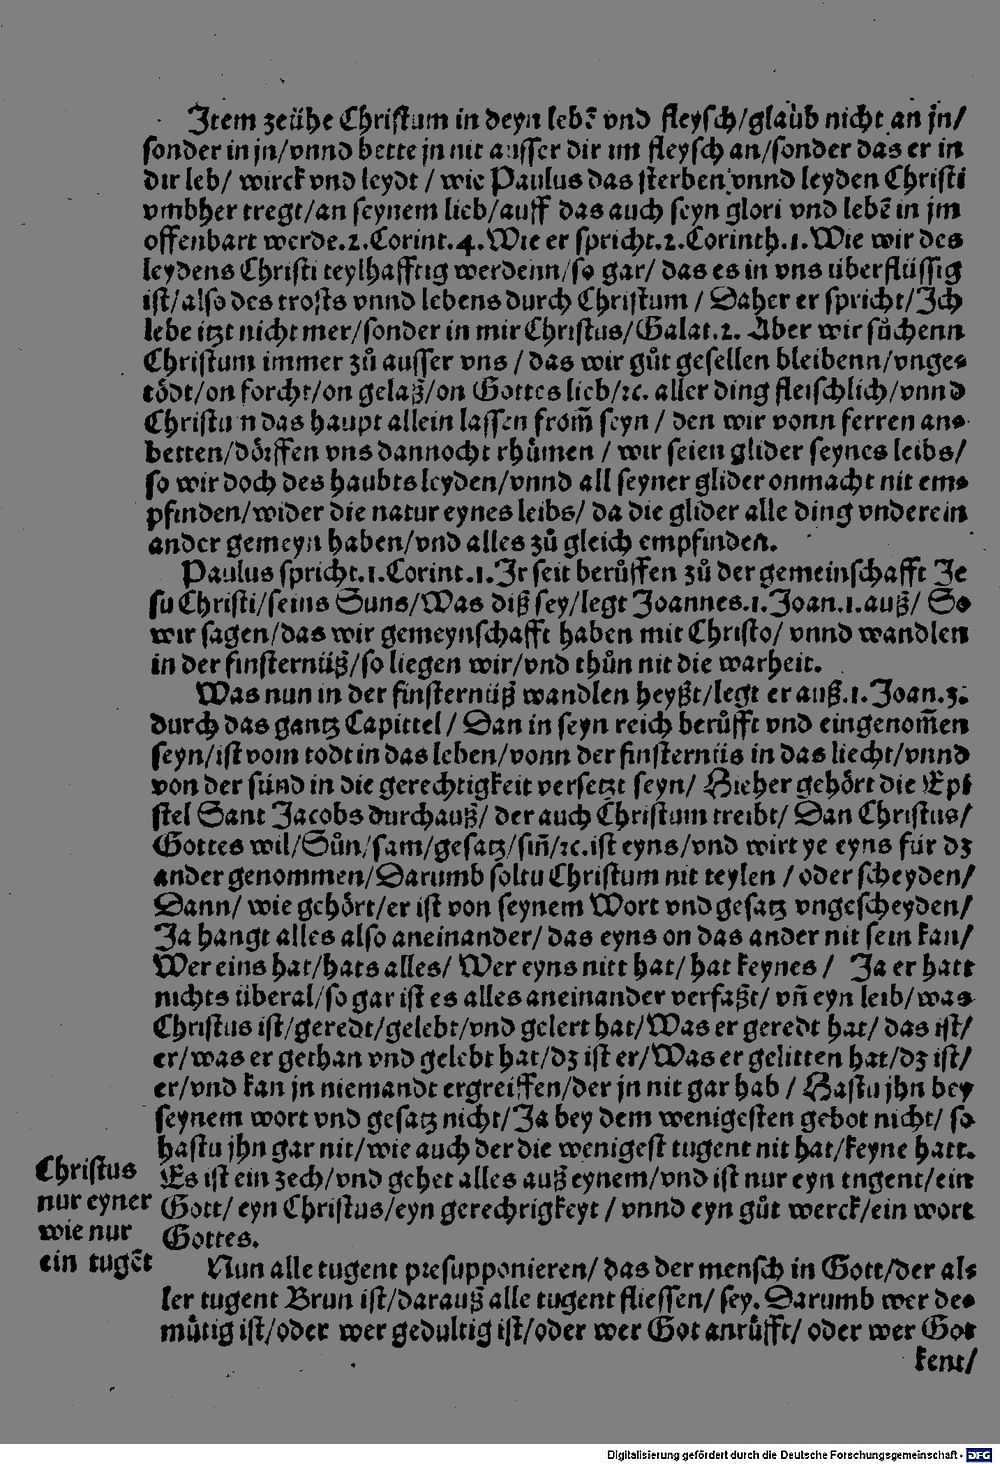 Item zeühe Christum in deyn lebẽ vnd fleysch/glaub nicht an jn/
sonder in jn/vnnd bette jn nit ausser dir im fleysch an/sonder das er in
dir leb/ wirck vnd leydt / wie Paulus das sterben vnnd leyden Christi
vmbher tregt/an seynem lieb/auff das auch seyn glori vnd lebẽ in jm
offenbart werde.2.Corint.4.Wie er spricht.2.Corinth.1.Wie wir des
leydens Christi teylhafftig werdenn/so gar/ das es in vns überflüssig
ist/also des trosts vnnd lebens durch Christum / Daher er spricht/Ich
lebe itzt nicht mer/sonder in mir Christus/Galat.2. Aber wir sůchenn
Christum immer zů ausser vns / das wir gůt gesellen bleibenn/vnge-
tödt/on forcht/on gelaß/on Gottes lieb/ꝛc. aller ding fleischlich/vnnd
Christum das haupt allein lassen from̃ seyn / den wir vonn ferren an-
betten/dörffen vns dannocht rhůmen / wir seien glider seynes leibs/
so wir doch des haubts leyden/vnnd all seyner glider onmacht nit em-
pfinden/wider die natur eynes leibs/ da die glider alle ding vnderein
ander gemeyn haben/vnd alles zů gleich empfinden.
Paulus spricht.1.Corint.1.Ir seit berůffen zů der gemeinschafft Je
su Christi/seins Suns/Was diß sey/legt Joannes.1.Joan.1.auß/ So
wir sagen/das wir gemeynschafft haben mit Christo/ vnnd wandlen
in der finsternüß/so liegen wir/vnd thůn nit die warheit.
Was nun in der finsternüß wandlen heyßt/legt er auß.1.Joan.3.
durch das gantz Capittel / Dan in seyn reich berůfft vnd eingenom̃en
seyn/ist vom todt in das leben/vonn der finsternüs in das liecht/vnnd
von der sünd in die gerechtigkeit versetzt seyn/ Hieher gehört die Epi
stel Sant Jacobs durchauß/ der auch Christum treibt/ Dan Christus/
Gottes wil/Sůn/sam/gesatz/sin̄/ꝛc.ist eyns/vnd wirt ye eyns für dz
ander genommen/Darumb soltu Christum nit teylen / oder scheyden/
Dann/ wie gehört/er ist von seynem Wort vnd gesatz vngescheyden/
Ja hangt alles also aneinander/ das eyns on das ander nit sein kan/
Wer eins hat/hats alles/ Wer eyns nitt hat/ hat keynes / Ja er hatt
nichts überal/so gar ist es alles aneinander verfaßt/ vn̄ eyn leib/was
Christus ist/geredt/gelebt/vnd gelert hat/Was er geredt hat/ das ist/
er/was er gethan vnd gelebt hat/dz ist er/Was er gelitten hat/dz ist/
er/vnd kan jn niemandt ergreiffen/der jn nit gar hab / Hastu jhn bey
seynem wort vnd gesatz nicht/Ja bey dem wenigesten gebot nicht/ so
hastu jhn gar nit/wie auch der die wenigest tugent nit hat/keyne hatt.
Es ist ein zech/vnd gehet alles auß eynem/vnd ist nur eyn tugent/ein
Gott/ eyn Christus/eyn gerechtigkeyt / vnnd eyn gůt werck/ein wort
Gottes.
Christus
nur eyner
wie nur
ein tugẽt
Nun alle tugent presupponieren/ das der mensch in Gott/der al-
ler tugent Brun ist/darauß alle tugent fliessen/ sey. Darumb wer de-
mütig ist/oder wer gedultig ist/oder wer Got anrůfft/ oder wer Got
kent/
Digitalisierung gefördert durch die Deutsche Forschungsgemeinschaft - DFG